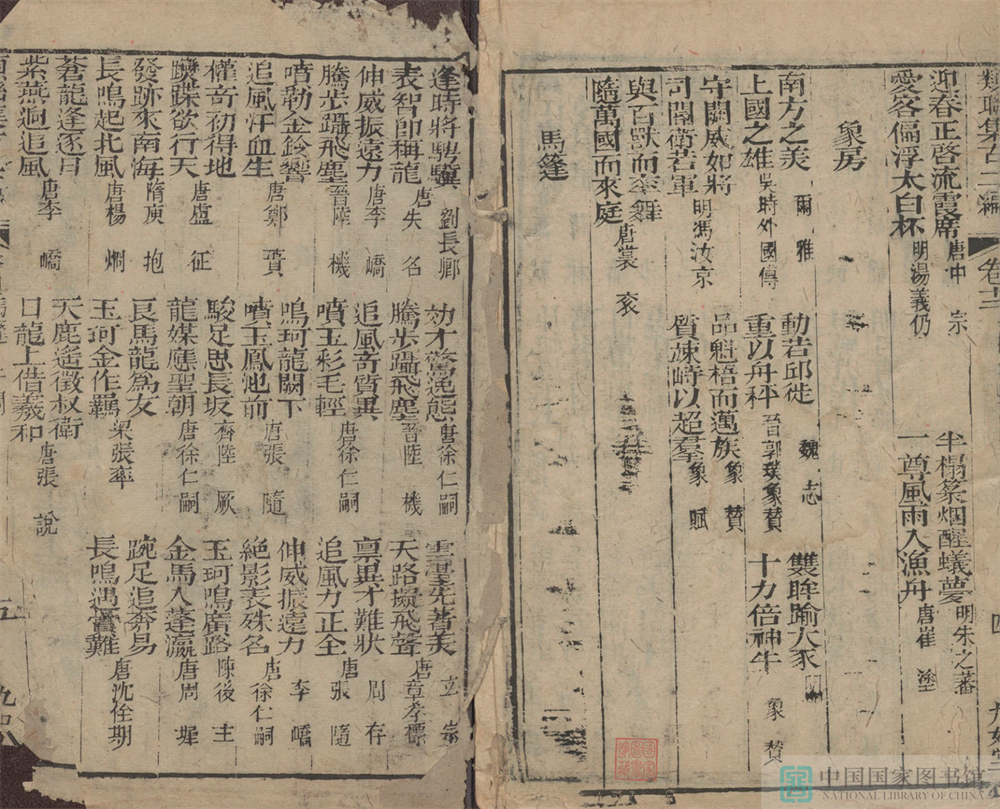 類聯集古二編 卷十二 四
迎春正啓流霞席 唐中宗 半榻篆烟醒蟻夢 明朱之蕃
愛客偏浮太白杯 明湯義仍 一尊風雨入漁舟 唐崔塗
象房
南方之美 爾雅 動若邱徙 魏志 雙眸踰大豕
上國之雄 吳時外國傳 重以舟秤 晉郭璞象贊 十力倍神牛 象贊
守闕威如將 品魁梧而邁族 象贊
司閽衛若軍 明馮汝京 質竦峙以超羣 象賦
與百獸而率舞
隨萬國而來庭 唐裴袞
馬篷
逢時將騁驥 劉長卿 効才驚逸態 唐徐仁嗣 雲臺先著美 玄宗
表智即稱龍 唐失名 騰步躡飛塵 晉陸機 天路擬飛聲 唐章孝標
伸威振遠力 唐李嶠 追風奇質異 稟異才難狀 周存
騰步躡飛塵 晉陸機 噴玉彩毛輕 唐徐仁嗣 追風力正全 唐張隨
噴勒金鈴響 鳴珂龍闕下 伸威振遠力 李嶠
追風汗血生 唐鄭蕡 噴玉鳳池前 唐張隨 絕影表殊名 唐徐仁嗣
權奇初得地 駿足思長坂 齊陸厥 玉珂鳴廣路 陳後主
躞蹀欲行天 唐盧征 龍媒應聖朝 唐徐仁嗣 金馬入蓬瀛 唐周墀
發跡來南海 隋庾抱 良馬龍爲友 踠足追奔易
長鳴起北風 唐楊炯 玉珂金作羈 梁張率 長鳴遇賞難 唐沈佺期
蒼龍逢逐日 天鹿遙徵叔衛
紫燕迥追風 唐李嶠 日龍上借羲和 唐張說
五
中国国家图书馆
NATIONAL LIBRARY OF CHINA